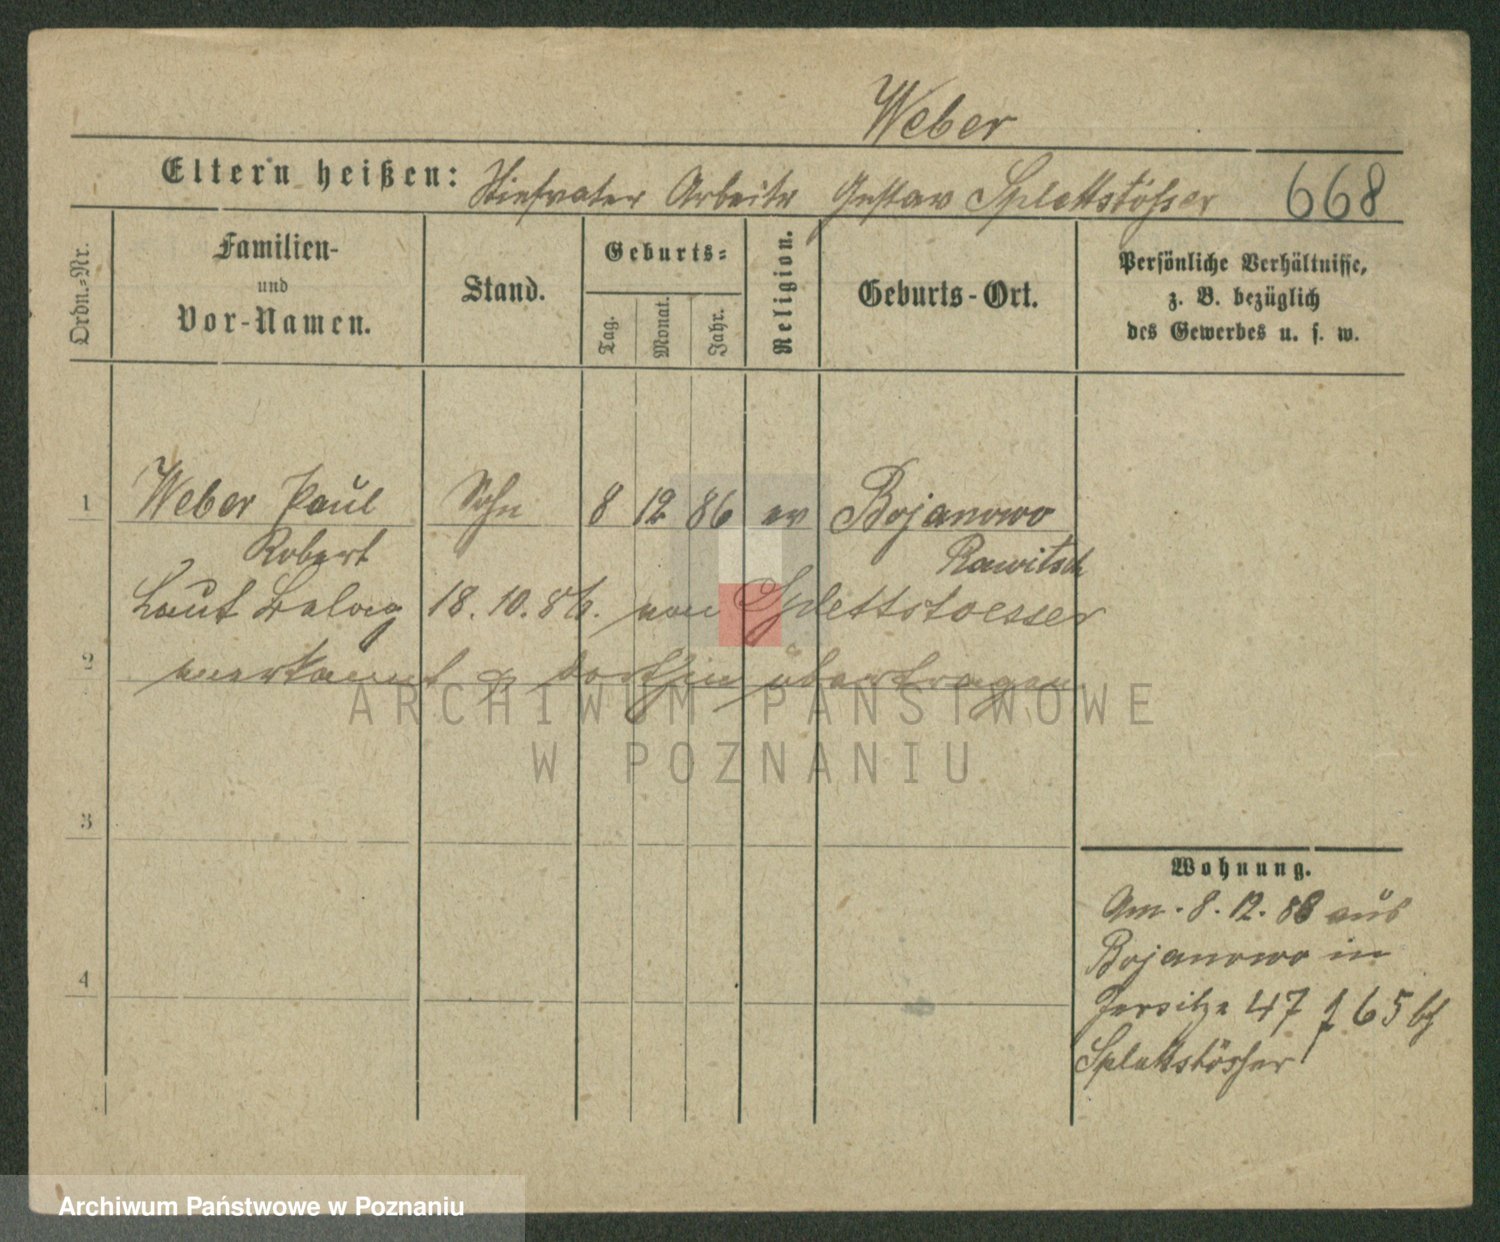 Weber
Eltern heißen: Stiefvater Arbeiter Gustav Splettstößer 668
Ordn.-Nr.
Familien-
und
Vor-Namen.
Stand.
Geburts-
Tag.
Monat.
Jahr.
Religion.
Geburts-Ort.
Persönliche Verhältnisse,
z. B. bezüglich
des Gewerbes u. s. w.
1 Weber Paul Sohn 8 12 86 ev Bojanowo
Robert Rawitsch
Laut Belag 18.10.86. von Splettstoesser
2 anerkannt & dorthin übertragen
3
Wohnung.
Am 8. 12. 88 aus
Bojanowo in
4
Jersitze 47 65
Splettstößer
ARCHIWUM PAŃSTWOWE
W POZNANIU
Archiwum Państwowe w Poznaniu